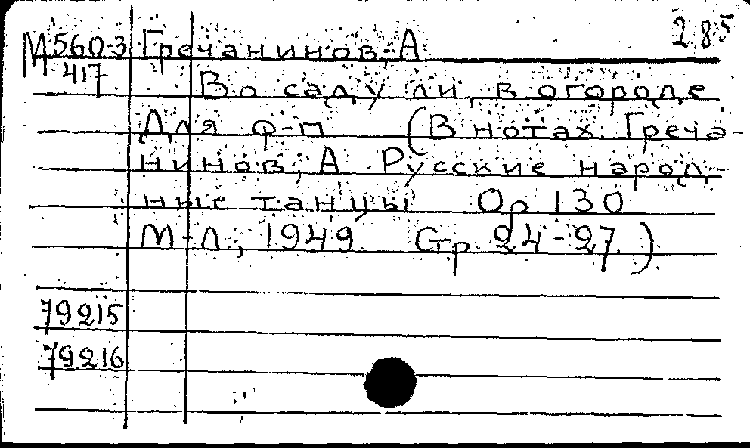 285
М560-3 Гречанинов, А
417 Во саду ли, в огороде
Для ф-п (В нотах: Греча-
нинов, А Русские народ-
ные танцы Op 130
М-Л, 1949 Стр 24-27)
79215
79216